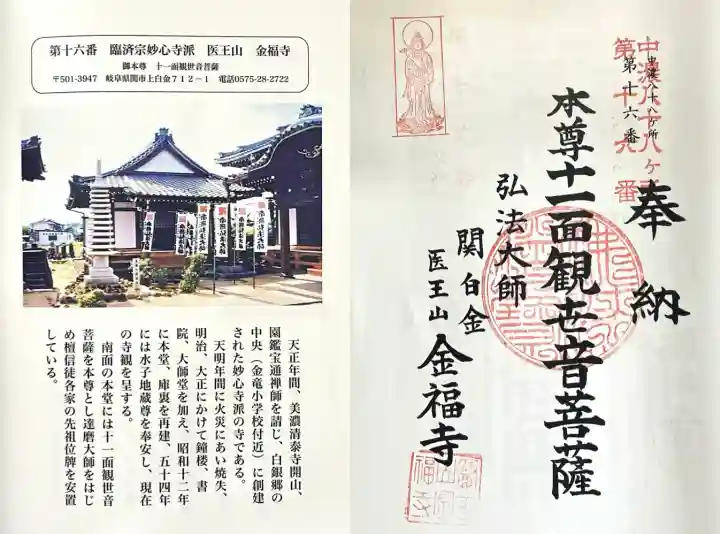 第十六番　臨済宗妙心寺派　医王山　金福寺
御本尊　十一面観世音菩薩
〒501-3947　岐阜県関市上白金７１２－１　電話0575-28-2722
天正年間、美濃清泰寺開山、
園鑑宝通禅師を請じ、白銀郷の
中央（金竜小学校付近）に創建
された妙心寺派の寺である。
天明年間に火災にあい焼失、
明治、大正にかけて鐘楼、書
院、大師堂を加え、昭和十二年
に本堂、庫裏を再建、五十四年
には水子地蔵尊を奉安し、現在
の寺観を呈する。
南面の本堂には十一面観世音
菩薩を本尊とし達磨大師をはじ
め檀信徒各家の先祖位牌を安置
している。
中濃八十八ヶ所
第十六番
中濃八十八ヶ
第十六番
奉納
本尊十一面観世音菩薩
弘法大師
関白金
医王山
金福寺